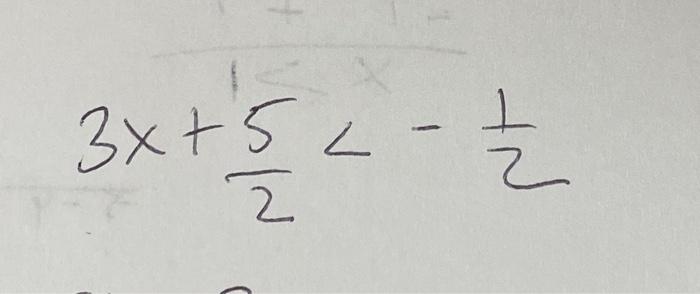 3x + 5/2 < - 1/2